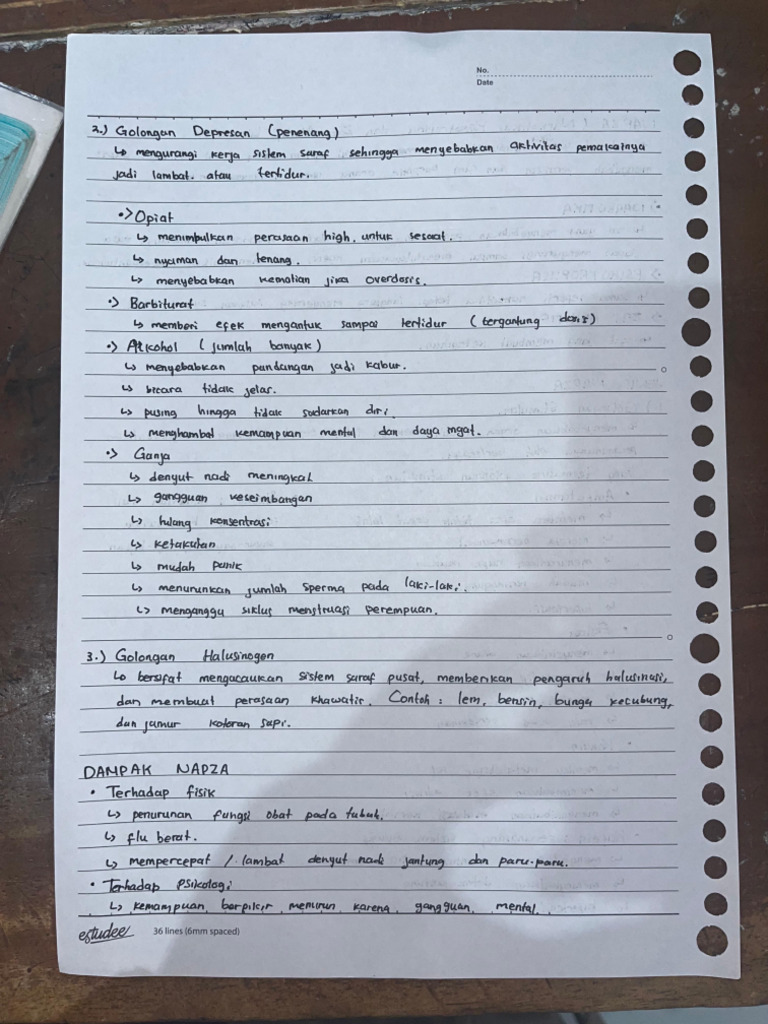 No.
Date
2.) Golongan Depresan (penenang)
↳ mengurangi kerja sistem saraf sehingga menyebabkan aktivitas pemakainya
jadi lambat atau tertidur.
•> Opiat
↳ menimbulkan perasaan high untuk sesaat.
↳ nyaman dan tenang.
↳ menyebabkan kematian jika overdosis.
•) Barbiturat
↳ memberi efek mengantuk sampai tertidur (tergantung dosis)
•) Alkohol (jumlah banyak)
↳ menyebabkan pandangan jadi kabur.
↳ bicara tidak jelas.
↳ pusing hingga tidak sadarkan diri.
↳ menghambat kemampuan mental dan daya ingat.
•) Ganja
↳ denyut nadi meningkat
↳ gangguan keseimbangan
↳ hilang konsentrasi
↳ ketakutan
↳ mudah panik
↳ menurunkan jumlah sperma pada laki-laki.
↳ menganggu siklus menstruasi perempuan.
3.) Golongan Halusinogen
↳ bersifat mengacaukan sistem saraf pusat, memberikan pengaruh halusinasi,
dan membuat perasaan khawatir. Contoh : lem, bensin, bunga kecubung,
dan jamur kotoran sapi.
DAMPAK NAPZA
• Terhadap fisik
↳ penurunan fungsi obat pada tubuh.
↳ flu berat.
↳ mempercepat / lambat denyut nadi jantung dan paru-paru.
• Terhadap psikologi
↳ kemampuan berpikir menurun karena gangguan mental.
estudee 36 lines (6mm spaced)